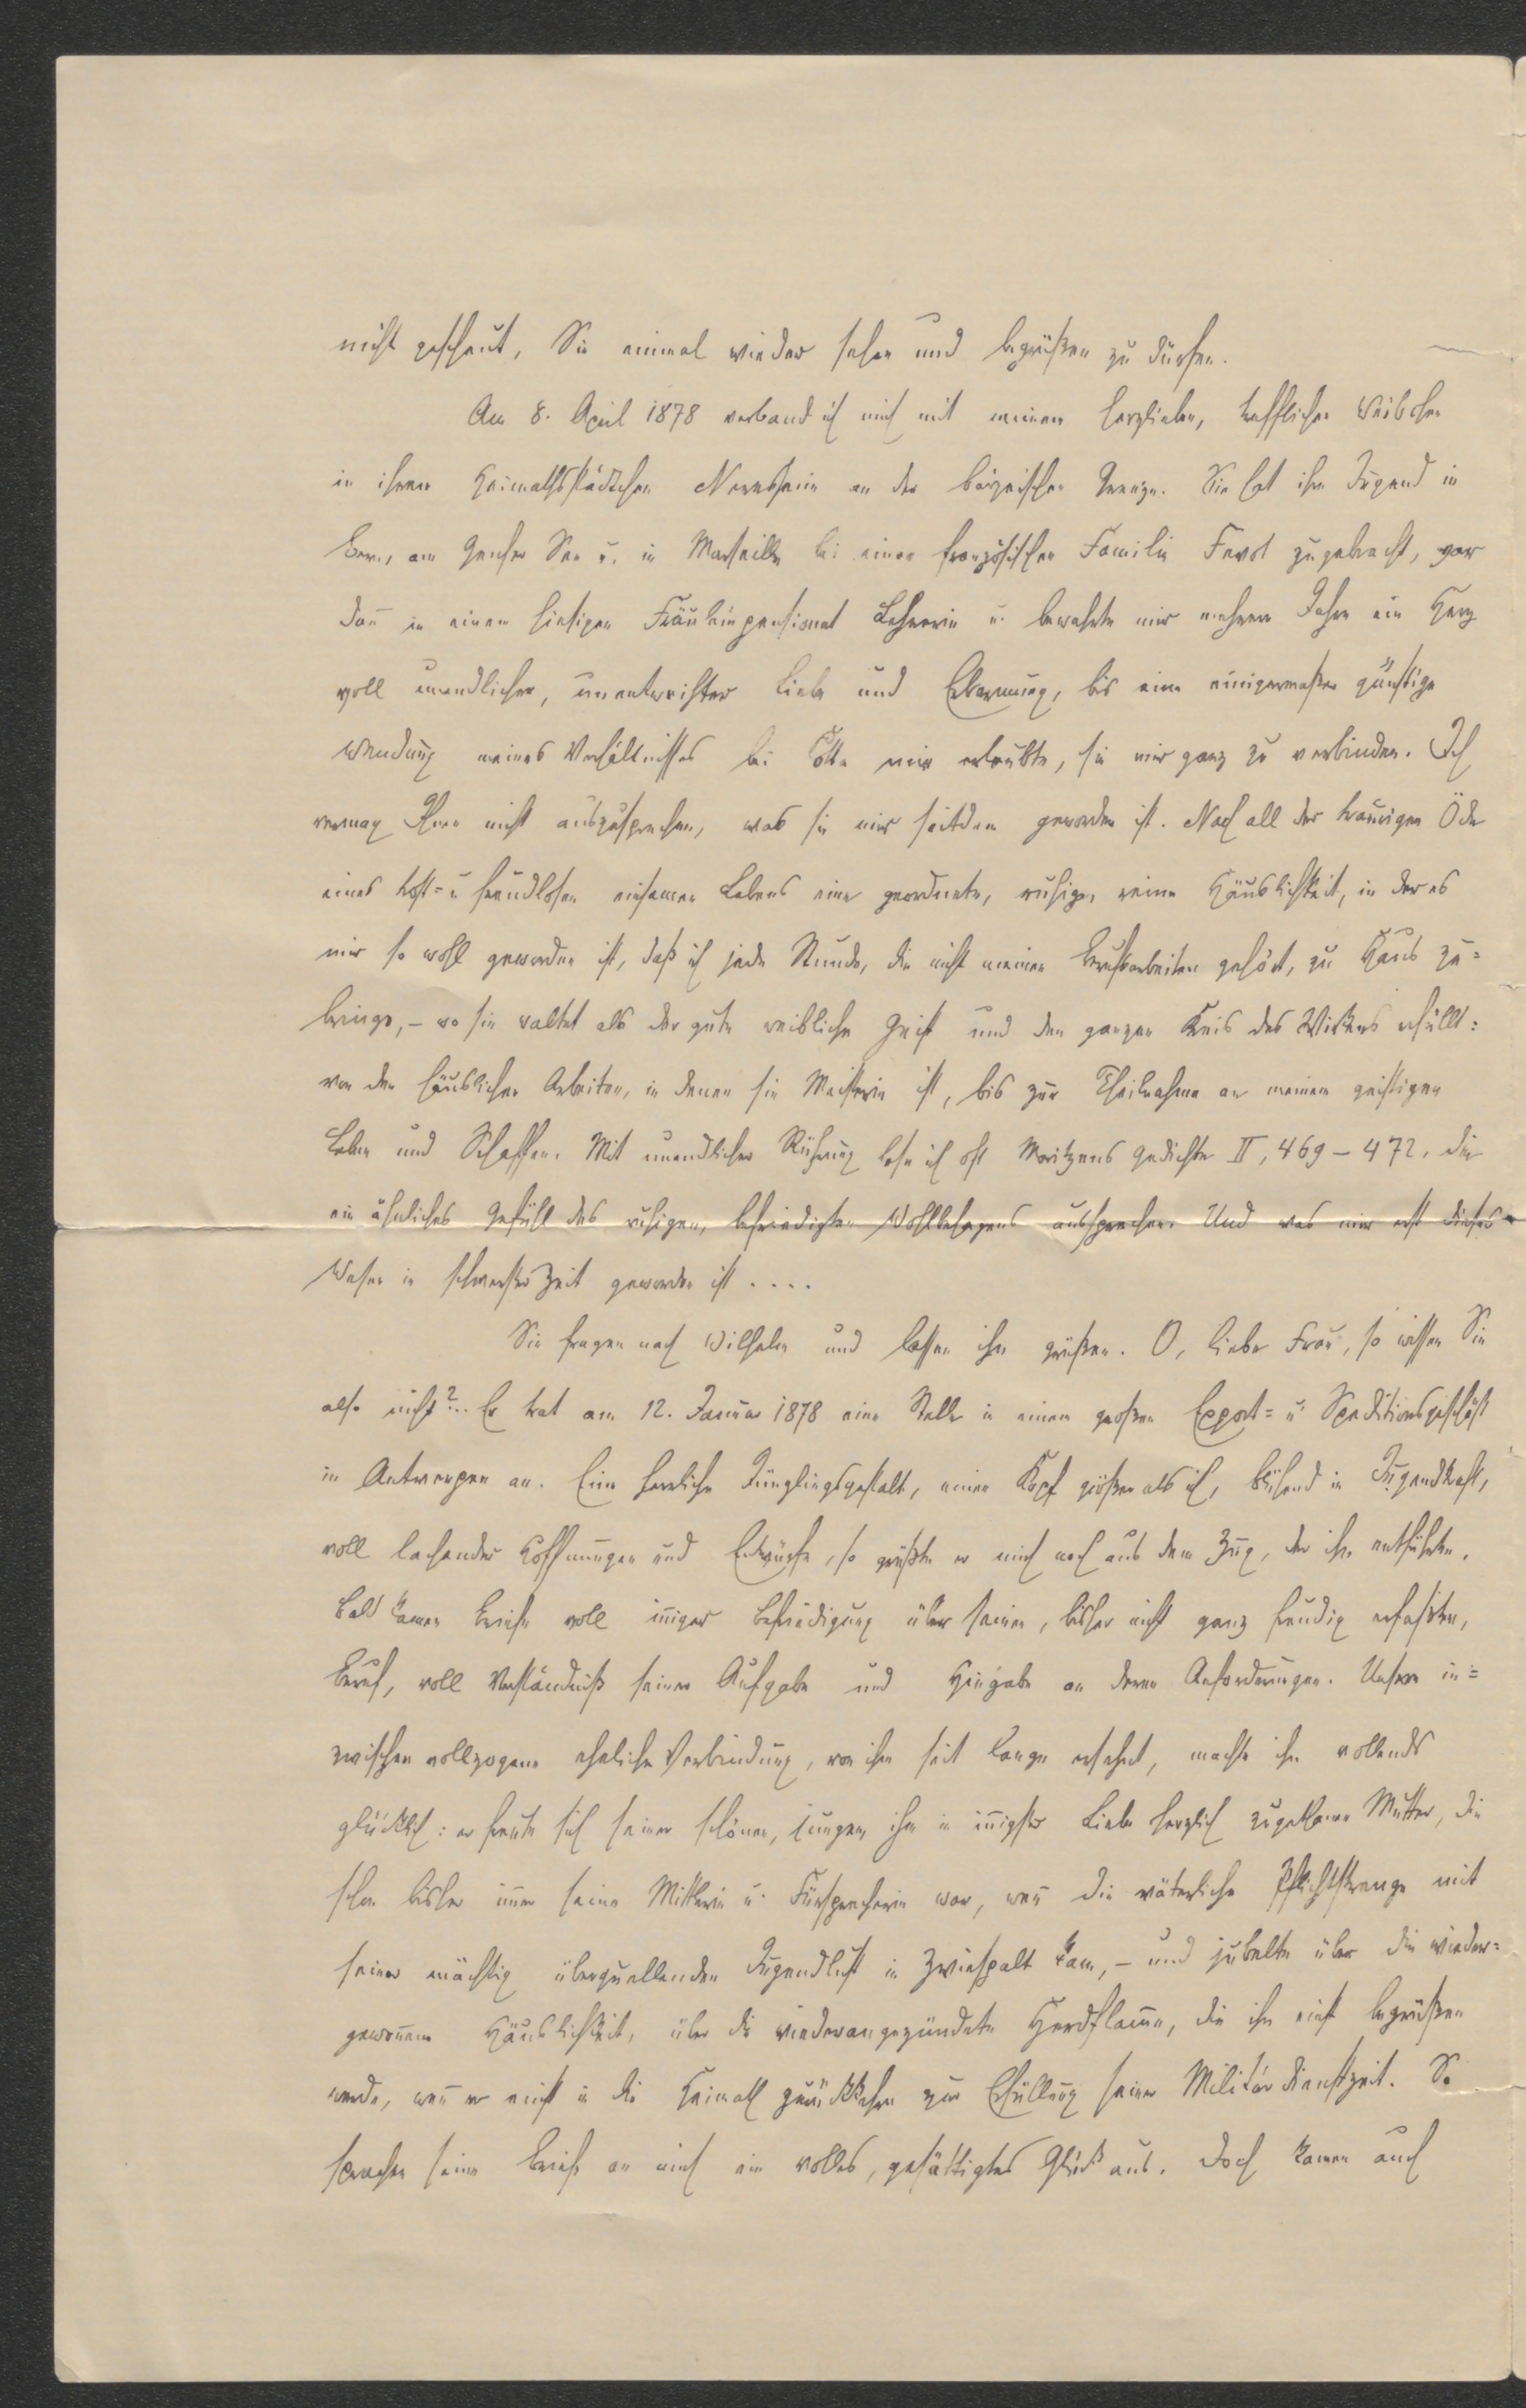 nicht gescheut, Sie einmal wieder sehen und begrüßen zu dürfen.
Am 8. April 1878 verband ich mich mit meinem herzlieben, trefflichen Weibchen
in ihrem Heimathsstädtchen Neresheim an der bairischen Grenze. Sie hat ihre Jugend in
Bern, am Genfer See u. in Marseille bei einer französischen Familie zugebracht, war
dann in einem hiesigen Fräuleinpensionat Lehrerin u. bewahrte mir mehrere Jahre ein Herz
voll unendlicher, unentweihter Liebe und Erbarmung, bis eine einigermaßen günstige
Wendung meines Verhältnisses bei Cotta mir erlaubte, sie mir ganz zu verbinden. Ich
vermag Ihnen nicht auszusprechen, was sie mir seitdem geworden ist. Nach all der traurigen Öde
eines trost= u freudlosen einsamen Lebens eine geordnete, ruhige, reine Häuslichkeit, in der es
mir so wohl geworden ist, daß ich jede Stunde, die nicht meinen Berufsarbeiten gehört, zu Haus zu=
bringe, – wo sie waltet als der gute weibliche Geist und den ganzen Kreis des Wirkens erfüllt:
von den häuslichen Arbeiten, in denen sie Meisterin ist, bis zur Theilnahme an meinem geistigen
Leben und Schaffen. Mit unendlicher Rührung lese ich oft Moritzens Gedichte II, 469–472, die
ein ähnliches Gefühl des ruhigen, befriedigten Wohlbehagens aussprechen. Und was mir erst dieses
Wesen in schwerster Zeit geworden ist ....
Sie fragen nach Wilhelm und lassen ihn grüßen. O, liebe Frau, so wissen Sie
also nicht?.. Er trat am 12. Januar 1878 eine Stelle in einem großen Export= u. Speditionsgeschäft
in Antwerpen an. Eine herrliche Jünglingsgestalt, einen Kopf größer als ich, blühend in Jugendkraft,
voll lachender Hoffnungen und Entwürfe, so grüßte er mich noch aus dem Zug, der ihn entführte.
Bald kamen Briefe voll inniger Befriedigung über seinen, bisher nicht ganz freudig erfaßten,
Beruf, voll Verständniß seiner Aufgabe und Hingabe an deren Anforderungen. Unsere in=
zwischen vollzogene eheliche Verbindung, von ihm seit lange ersehnt, machte ihn vollends
glücklich: er freute sich seiner schönen, jungen ihm in innigster Liebe herzlich zugethanen Mutter, die
schon bisher immer seine Mittlerin u. Fürsprecherin war, wenn die väterliche Pflichtstrenge mit
seiner mächtig überquellenden Jugendlust in Zwiespalt kam, – und jubelte über die wieder=
gewonnene Häuslichkeit, über die wiederangezündete Herdflamme, die ihn einst begrüßen
werde, wenn er einst in die Heimath zurückkehre zur Erfüllung seiner Militärdienstzeit. So
sprachen seine Briefe an mich ein volles, gesättigtes Glück aus. Doch kamen auch